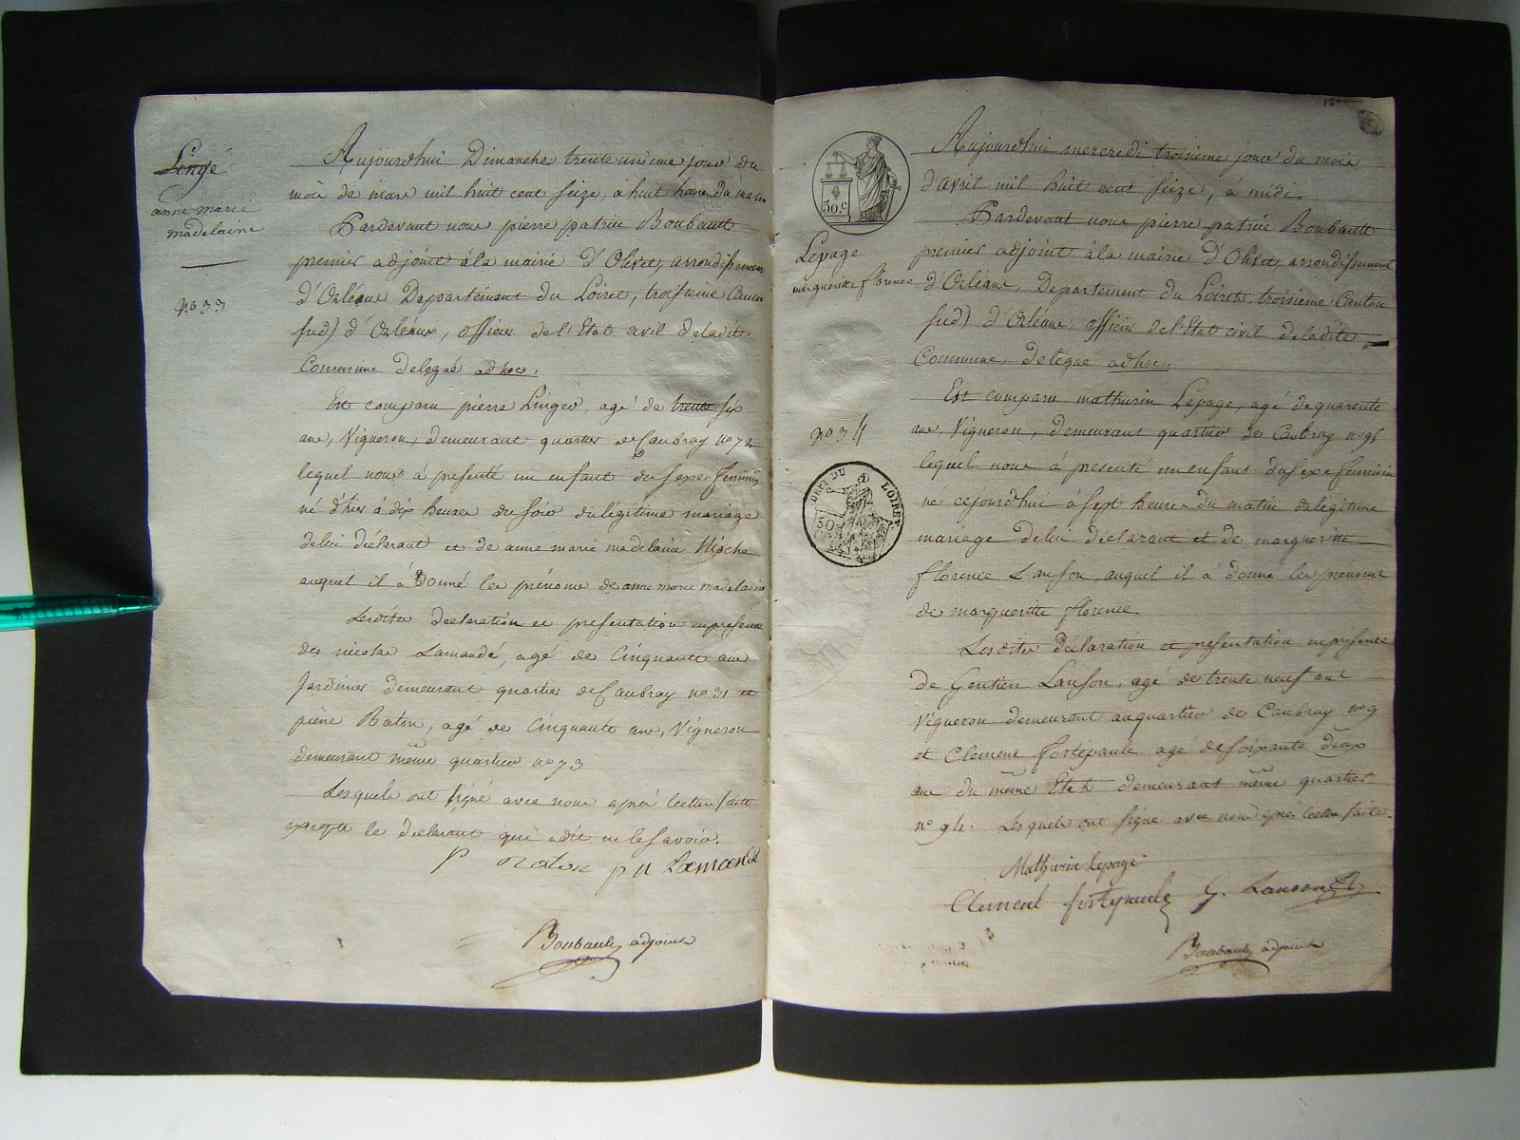 Lingé
anne marie
madelaine
no 33
Aujourdhui Dimanche trente unieme jour du
mois de mars mil huit cent seize, à huit heures du matin
Pardevant nous pierre patrice Boubault
premier adjoint à la mairie d'Olivet, arrondissement
d'Orléans Département du Loiret, troisieme Canton
sud) d'Orléans, officier de l'Etat civil de ladite
Commune délégué ad hoc.
Est comparu pierre Linger, agé de trente six
ans, Vigneron, demeurant quartier de Caubray no 72
lequel nous à presenté un enfant du sexe feminin
né d'hier à dix heures du soir du légitime mariage
de lui déclarant et de anne marie madelaine
auquel il à donné les prénoms de anne marie madelaine
Lesdites declaration et presentation en presence
des nicolas Lamandé, agé de Cinquante ans
Jardinier demeurant quartier de Caubray no 31 et
pierre Raton, agé de Cinquante ans, Vigneron
demeurant même quartier no 73
Lesquels ont signé avec nous après lecture faite
excepté le declarant qui a dit ne le savoir.
Boubault adjoint
30.c
Lepage
marguerite florence
no 34
DEPt DU LOIRET.
Aujourdhui mercredi troisieme jour du mois
d'avril mil huit cent seize, à midi.
Pardevant nous pierre patrice Boubault
premier adjoint à la mairie d'Olivet, arrondissement
d'Orléans, Departement du Loiret, troisieme Canton
sud) d'Orléans, officier de l'Etat civil de ladite
Commune, délégué ad hoc.
Est comparu mathurin Lepage, agé de quarente
ans, Vigneron, demeurant quartier de Caubray no
lequel nous à presenté un enfant du sexe feminin
né cejourdhui à sept heures du matin du légitime
mariage de lui déclarant et de marguerite
florence Lanson, auquel il à donné les prénoms
de marguerite florence
Lesdites déclaration et presentation en presence
de Gentien Lanson, agé de trente neuf ans
Vigneron demeurant au quartier de Caubray no 9
et Clement fortépaule agé de soixante deux
ans du même Etat demeurant même quartier
no 94. Lesquels ont signé avec nous après lecture faite.
Mathurin Lepage
Clement fortepaule G. Lanson
Boubault adjoint